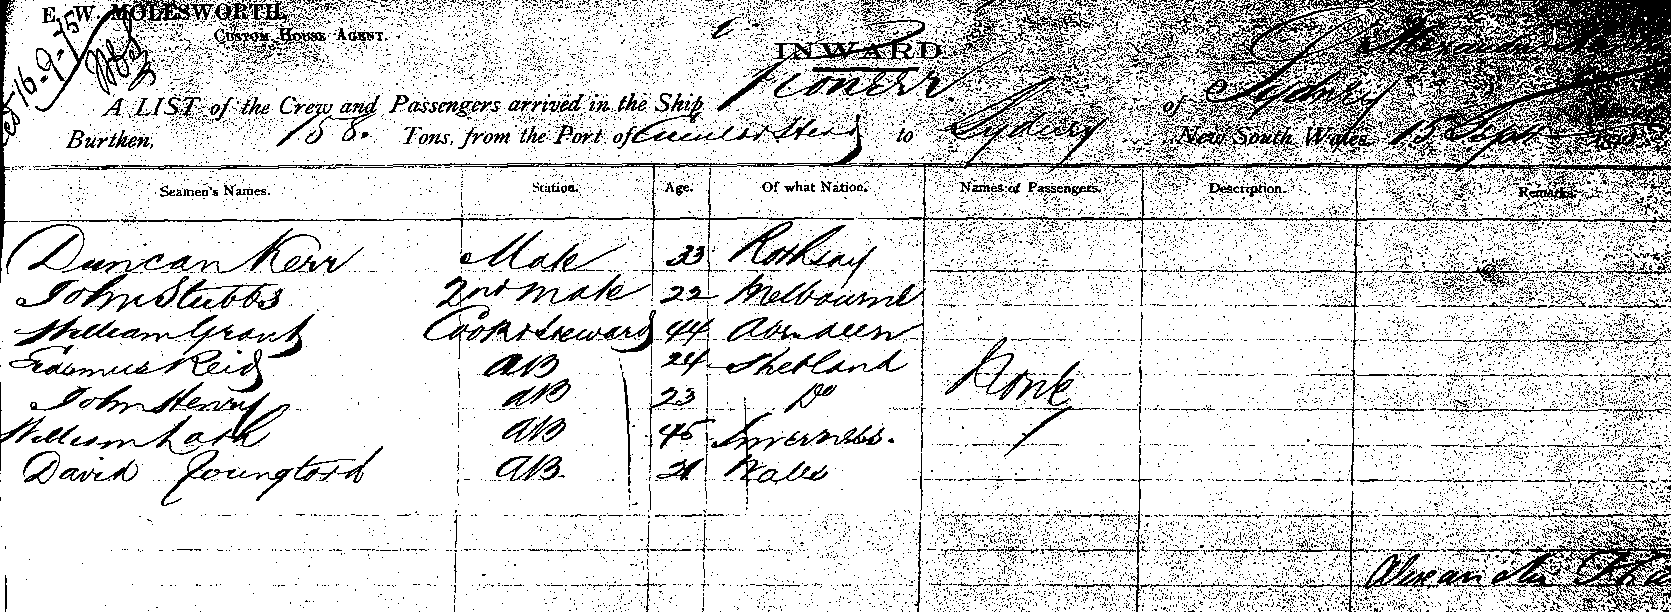 E. W. MOLESWORTH,
CUSTOM HOUSE AGENT.
16-9-75
INWARD
A LIST of the Crew and Passengers arrived in the Ship Pioneer of Sydney
Burthen, 158 Tons, from the Port of Circular Head to Sydney New South Wales 15 Sept
Seamen's Names. Station. Age. Of what Nation. Names of Passengers. Description. Remarks.
Duncan Kerr Mate 33 Rothsay
John Stubbs 2nd Mate 22 Melbourne
William Grant Cook & Steward 44 Aberdeen
Erasmus Reid AB 24 Shetland
John Henry AB 23 Do None
William AB 45 Inverness.
David AB 21 Wales
Alexander